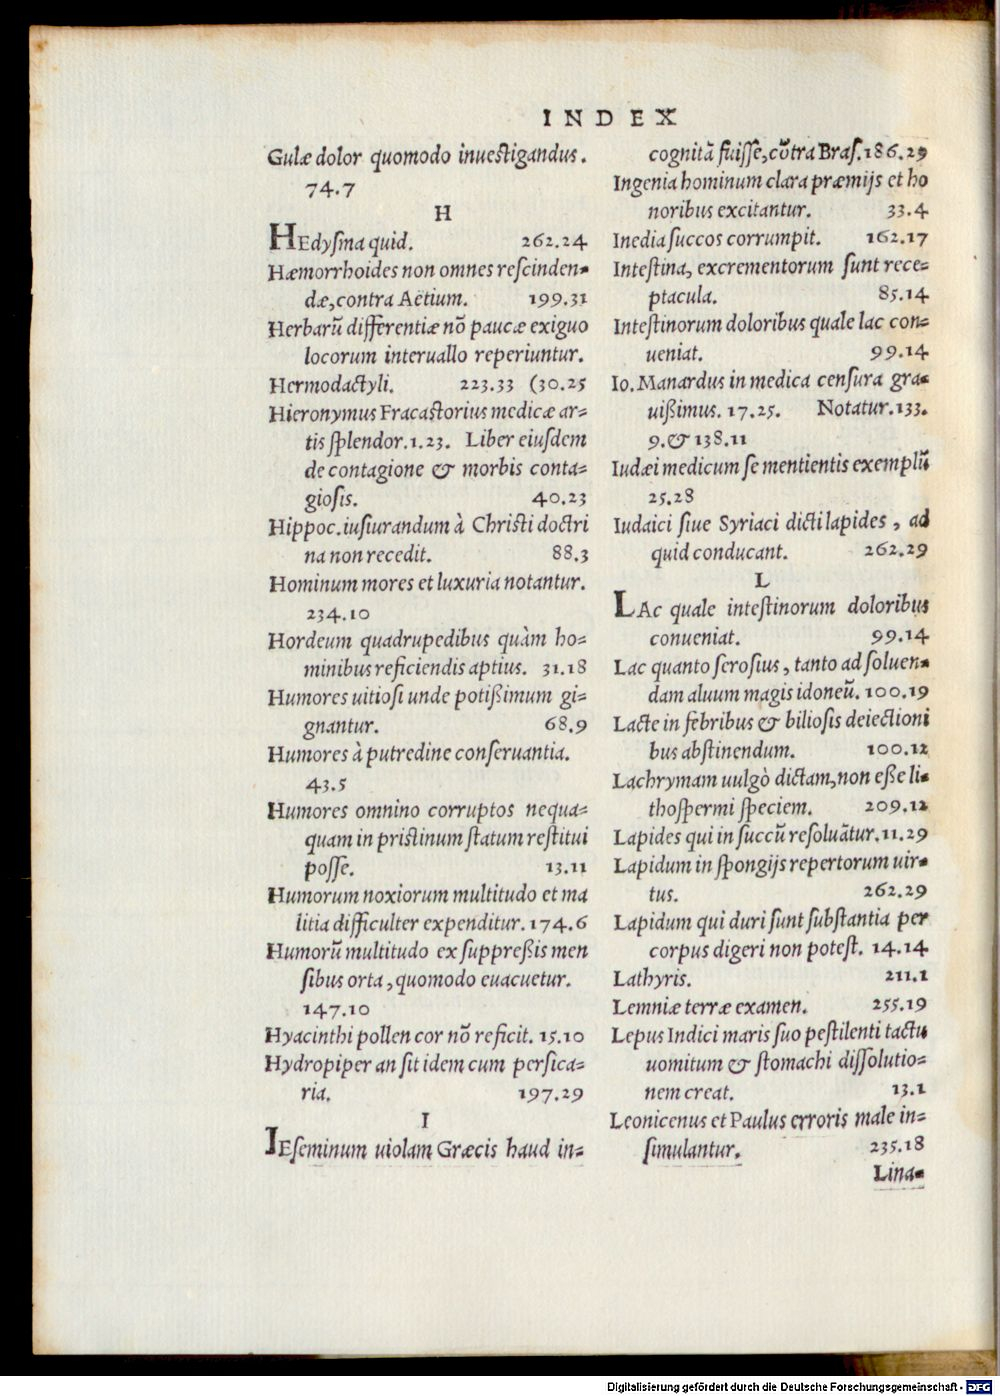 INDEX
Gulæ dolor quomodo inuestigandus.
74.7
H
HEdysma quid. 262.24
Hæmorrhoides non omnes rescinden-
dæ, contra Aëtium. 199.31
Herbarũ differentiæ nõ paucæ exiguo
locorum interuallo reperiuntur.
Hermodactyli. 223.33 (30.25
Hieronymus Fracastorius medicæ ar-
tis splendor. 1.23. Liber eiusdem
de contagione & morbis conta-
giosis. 40.23
Hippoc. iusiurandum à Christi doctri
na non recedit. 88.3
Hominum mores et luxuria notantur.
234.10
Hordeum quadrupedibus quàm ho-
minibus reficiendis aptius. 31.18
Humores uitiosi unde potißimum gi-
gnantur. 68.9
Humores à putredine conseruantia.
43.5
Humores omnino corruptos nequa-
quam in pristinum statum restitui
posse. 13.11
Humorum noxiorum multitudo et ma
litia difficulter expenditur. 174.6
Humorũ multitudo ex suppreßis men
sibus orta, quomodo euacuetur.
147.10
Hyacinthi pollen cor nõ reficit. 15.10
Hydropiper an sit idem cum persica-
ria. 197.29
I
IEseminum uiolam Græcis haud in-
cognitã fuisse, cõtra Bras. 186.29
Ingenia hominum clara præmijs et ho
noribus excitantur. 33.4
Inedia succos corrumpit. 162.17
Intestina, excrementorum sunt rece-
ptacula. 85.14
Intestinorum doloribus quale lac con-
ueniat. 99.14
Io. Manardus in medica censura gra-
uißimus. 17.25. Notatur. 133.
9. & 138.11
Iudæi medicum se mentientis exemplũ
25.28
Iudaici siue Syriaci dicti lapides, ad
quid conducant. 262.29
L
LAc quale intestinorum doloribus
conueniat. 99.14
Lac quanto serosius, tanto ad soluen-
dam aluum magis idoneũ. 100.19
Lacte in febribus & biliosis deiectioni
bus abstinendum. 100.12
Lachrymam uulgò dictam, non eße li-
thospermi speciem. 209.12
Lapides qui in succũ resoluãtur. 11.29
Lapidum in spongijs repertorum uir-
tus. 262.29
Lapidum qui duri sunt substantia per
corpus digeri non potest. 14.14
Lathyris. 211.1
Lemniæ terræ examen. 255.19
Lepus Indici maris suo pestilenti tactu
uomitum & stomachi dissolutio-
nem creat. 13.1
Leonicenus et Paulus erroris male in-
simulantur. 235.18
Lina-
Digitalisierung gefördert durch die Deutsche Forschungsgemeinschaft - DFG